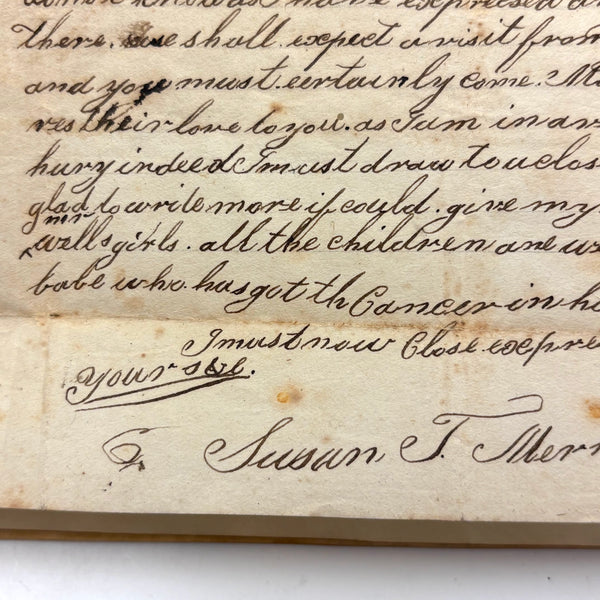 have expressed
there. we shall expect a visit from
and you must certainly come. M
res their love to you. as I am in a
hury indeed I must draw to u clos
glad to write more if could. give my
mr
wells girls. all the children are w
babe who has got th Cancer in h
I must now Close expre
Your s &c.
Susan T. Merr